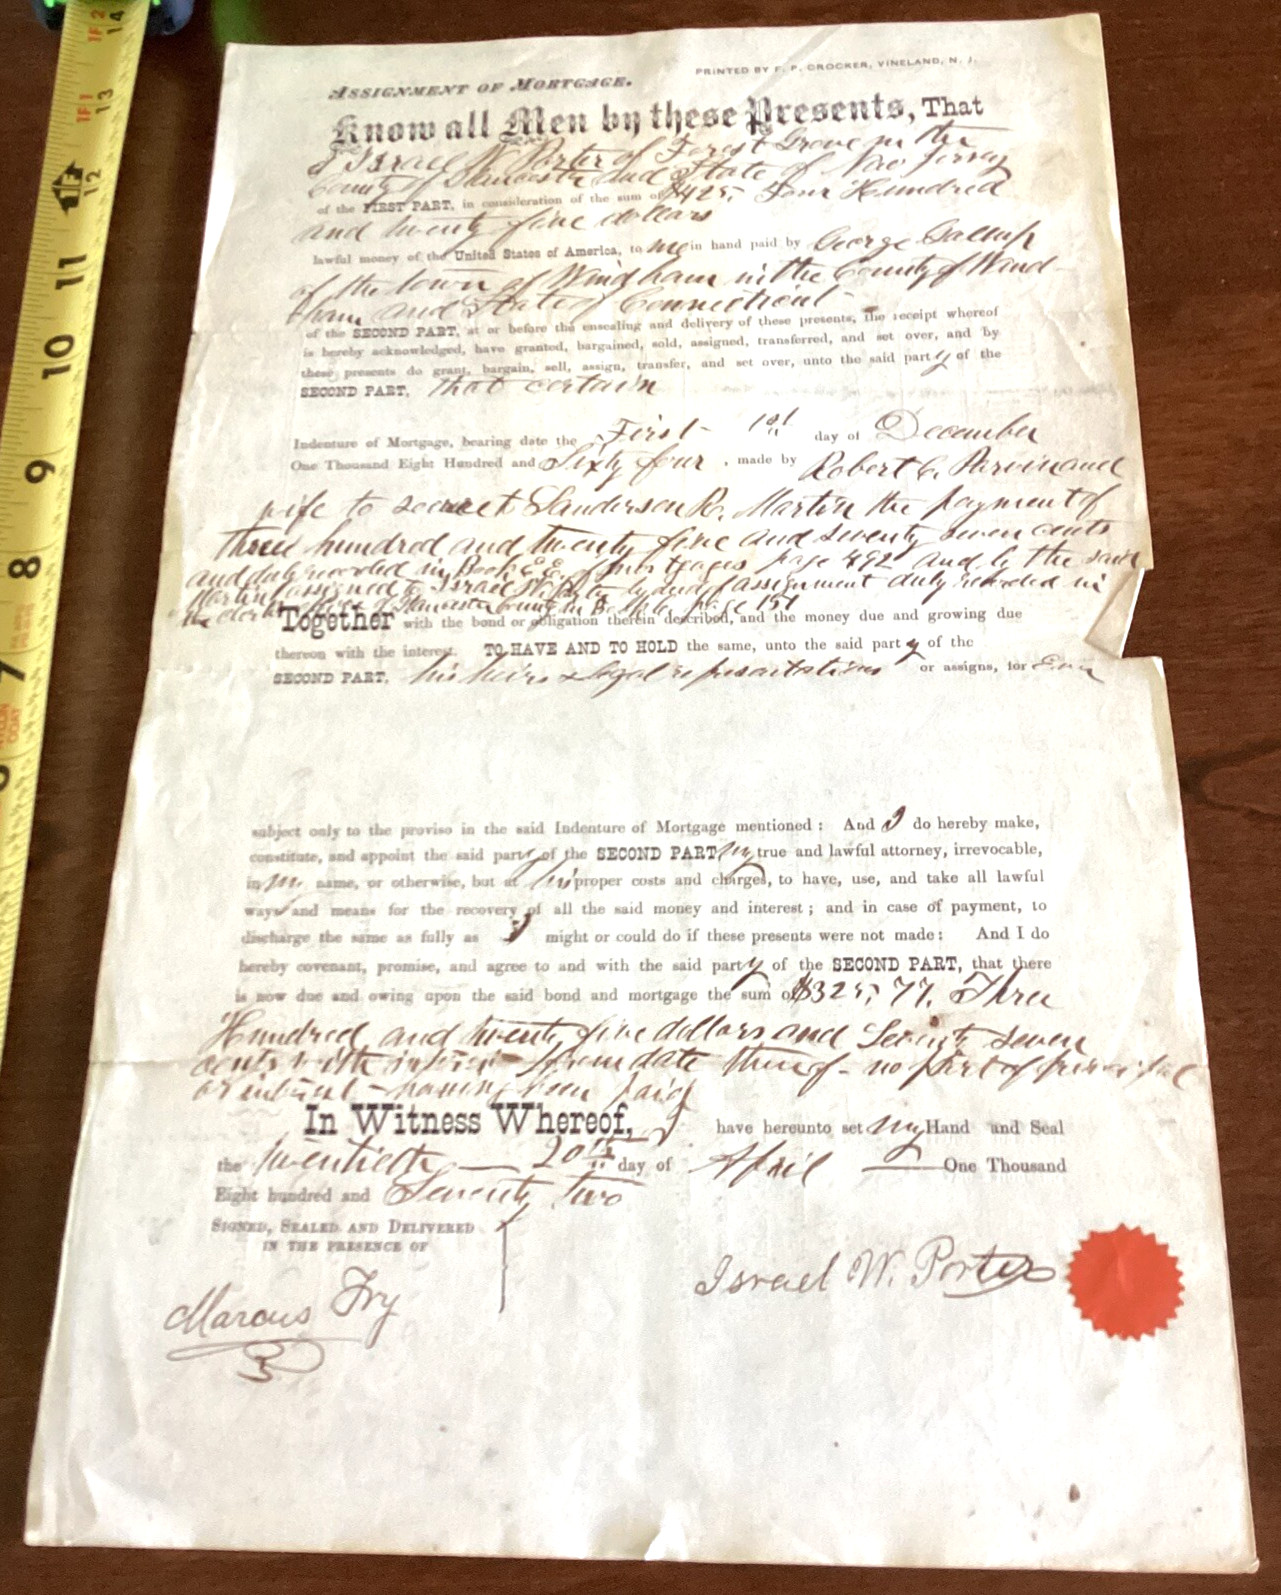 ASSIGNMENT OF MORTGAGE.
PRINTED BY F. P. CROCKER, VINELAND, N. J.
Know all Men by these Presents, That
I Israel W. Porter of Forest Grove in the
County of Gloucester and State of New Jersey
of the FIRST PART, in consideration of the sum of $425, Four Hundred
and twenty five dollars
lawful money of the United States of America, to me in hand paid by George Gallup
of the town of Windham in the County of Wind-
ham and State of Connecticut -
of the SECOND PART, at or before the ensealing and delivery of these presents, the receipt whereof
is hereby acknowledged, have granted, bargained, sold, assigned, transferred, and set over, and by
these presents do grant, bargain, sell, assign, transfer, and set over, unto the said party of the
SECOND PART, that certain
Indenture of Mortgage, bearing date the First - 1st day of December
One Thousand Eight Hundred and Sixty four, made by Robert C. Parvin and
wife to secure to Sanderson R. Martin the payment of
three hundred and twenty five and seventy seven cents
and duly recorded in Book E.E. of mortgages page 492 and by the said
Martin assigned to Israel W. Porter by deed of assignment duly recorded in
the clerks office of Gloucester County in page 151
Together with the bond or obligation therein described, and the money due and growing due
thereon with the interest. TO HAVE AND TO HOLD the same, unto the said party of the
SECOND PART, his heirs & legal representatives or assigns, for Ever
subject only to the proviso in the said Indenture of Mortgage mentioned: And I do hereby make,
constitute, and appoint the said party of the SECOND PART my true and lawful attorney, irrevocable,
in my name, or otherwise, but at his proper costs and charges, to have, use, and take all lawful
ways and means for the recovery of all the said money and interest; and in case of payment, to
discharge the same as fully as I might or could do if these presents were not made: And I do
hereby covenant, promise, and agree to and with the said party of the SECOND PART, that there
is now due and owing upon the said bond and mortgage the sum of $325,77, Three
Hundred and twenty five dollars and Seventy seven
cents with interest from date thereof - no part of principal
or interest - having been paid
In Witness Whereof, I have hereunto set my Hand and Seal
the twentieth — 20th day of April — One Thousand
Eight hundred and Seventy two
SIGNED, SEALED AND DELIVERED
IN THE PRESENCE OF
Israel W. Porter
Marcus Fry
1F2
14
1F1
13
1F
12
11
10
9
8
7